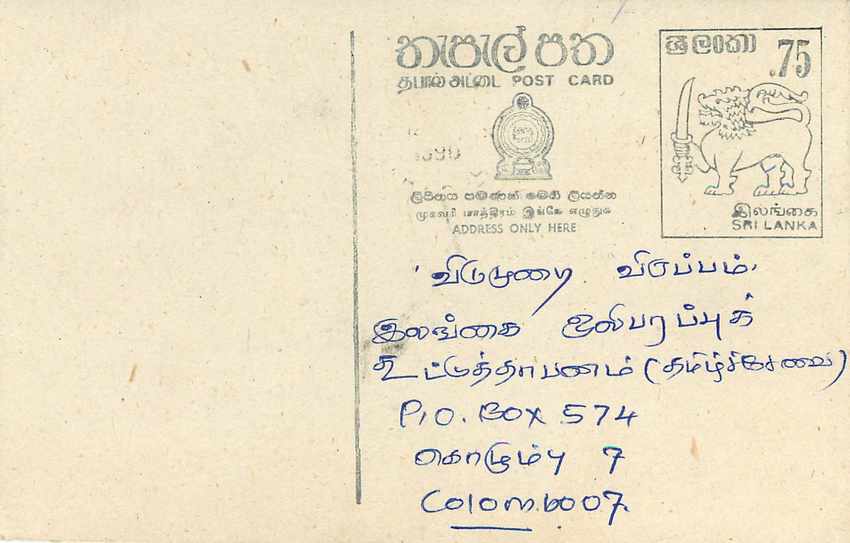 තැපැල් පත
தபால் அட்டை POST CARD
ශ්‍රී ලංකා
.75
1990
ලිපිනය පමණක් මෙහි ලියන්න
முகவரி மாத்திரம் இங்கே எழுதுக
ADDRESS ONLY HERE
இலங்கை
SRI LANKA
'விடுமுறை விருப்பம்'
இலங்கை ஒலிபரப்புக்
கூட்டுத்தாபனம் (தமிழ்ச்சேவை)
P.O. Box 574
கொழும்பு 7
Colombo 07.